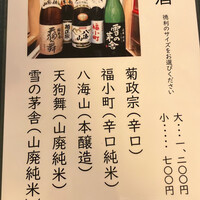 酒
徳利のサイズをお選びください
大・・・一、二〇〇
小・・・・七〇〇
菊政宗(辛口)
福小町(辛口純米)
八海山(本醸造)
天狗舞(山廃純米)
雪の茅舎(山廃純米